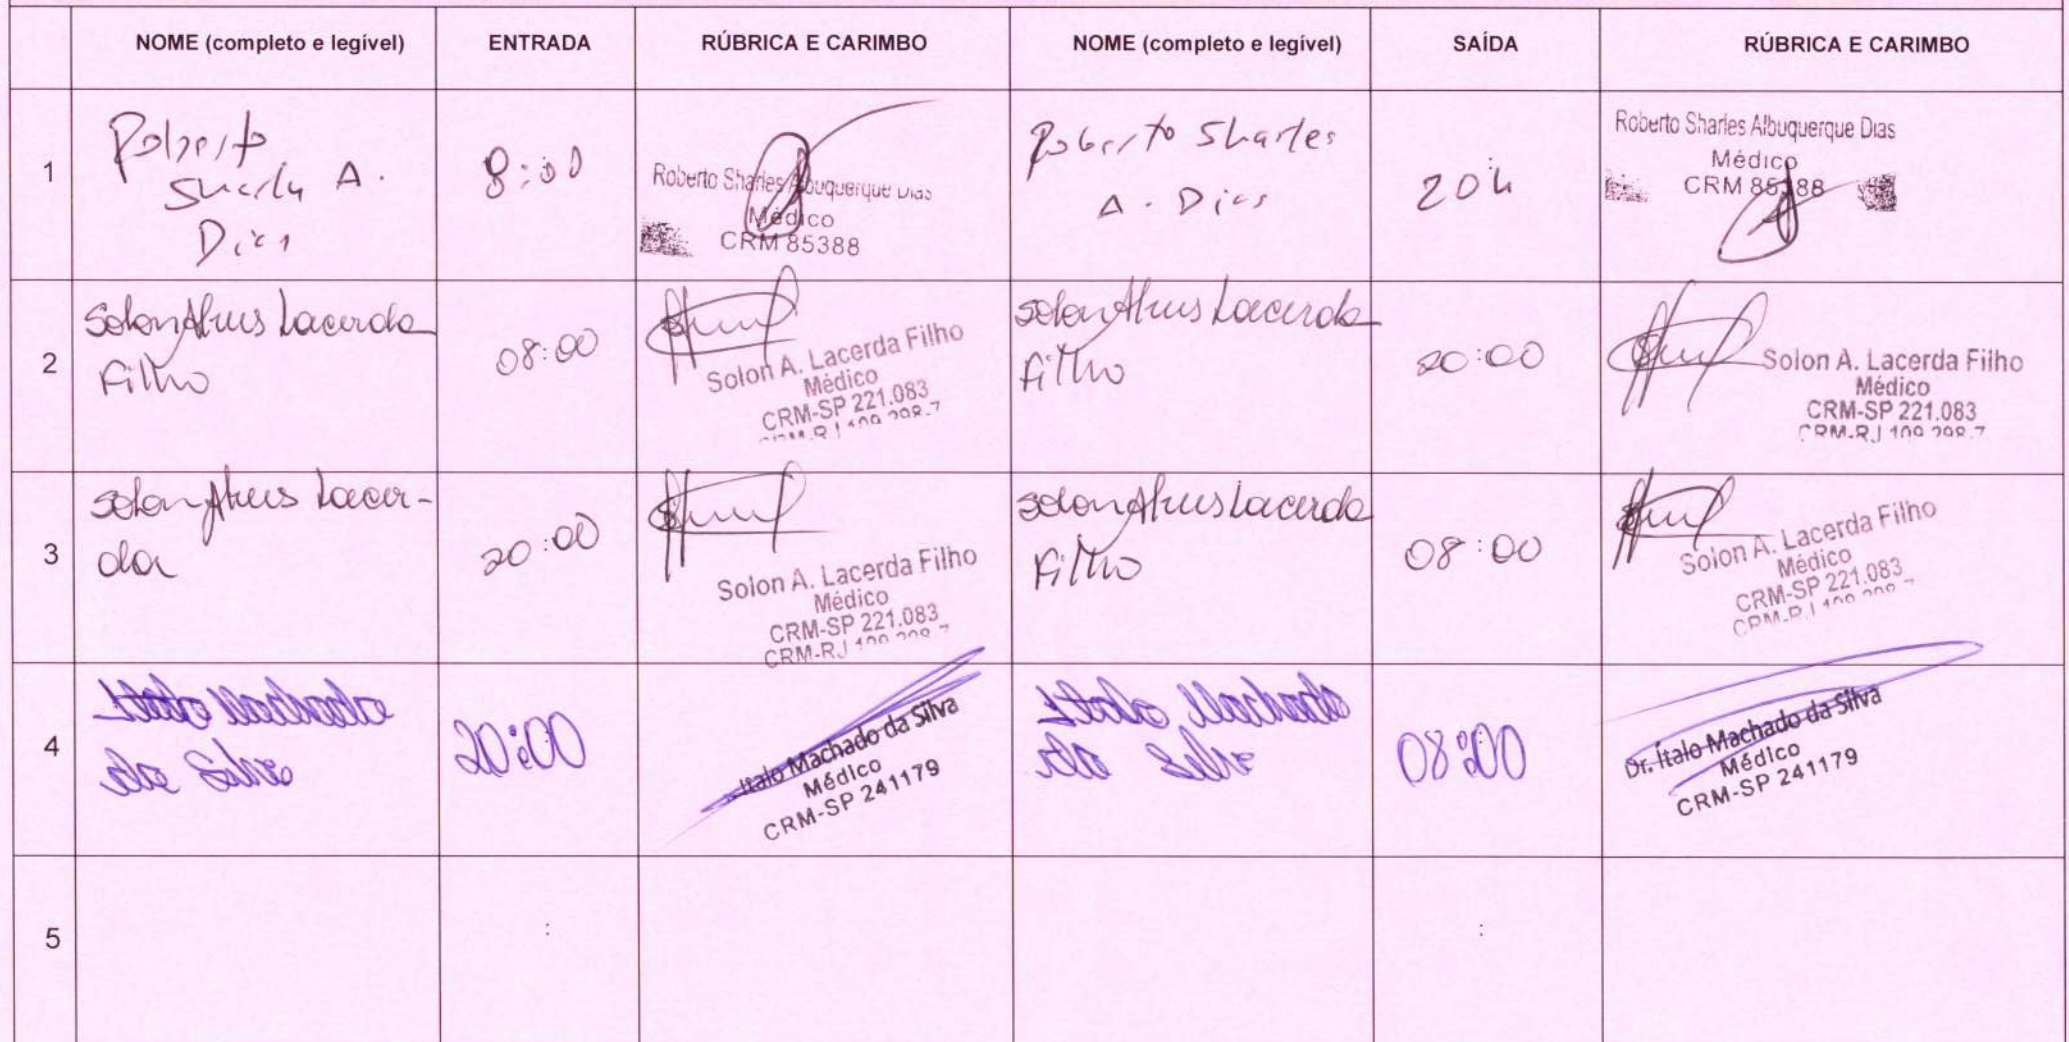 NOME (completo e legível) ENTRADA RÚBRICA E CARIMBO NOME (completo e legível) SAÍDA RÚBRICA E CARIMBO
1
Roberto
Sharles A.
Dias
8:00
Roberto Sharles Albuquerque Dias
Médico
CRM 85388
Roberto Sharles
A. Dias
20h
Roberto Sharles Albuquerque Dias
Médico
CRM 85388
2
Solon Lacerda
Filho
08:00
Solon A. Lacerda Filho
Médico
CRM-SP 221.083
CRM-RJ 109 298-7
Solon Lacerda
Filho
20:00
Solon A. Lacerda Filho
Médico
CRM-SP 221.083
CRM-RJ 109 298-7
3
Solon Lacer-
da
20:00
Solon A. Lacerda Filho
Médico
CRM-SP 221.083
CRM-RJ
Solon Lacerda
Filho
08:00
Solon A. Lacerda Filho
Médico
CRM-SP 221.083
CRM-RJ
4
Italo Machado
da Silva
20:00
Italo Machado da Silva
Médico
CRM-SP 241179
Italo Machado
da Silva
08:00
Dr. Ítalo Machado da Silva
Médico
CRM-SP 241179
5
:
: